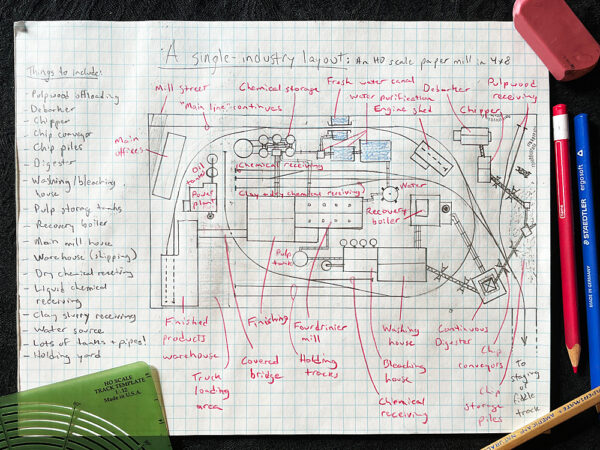 A single-industry layout: An HO scale paper mill in 4x8
Things to include:
- Pulpwood offloading
- Debarker
- Chipper
- Chip conveyor
- Chip piles
- Digester
- Washing/bleaching house
- Pulp storage tanks
- Recovery boiler
- Main mill house
- Warehouse (shipping)
- Dry chemical receiving
- Liquid chemical receiving
- Clay slurry receiving
- Water source
- Lots of tanks + pipes!
- Holding yard
Mill street
Chemical storage
Fresh water canal
Water purification
Engine shed
Debarker
Chipper
Pulpwood receiving
"Main line" continues
Main offices
Oil
Power plant
Chemical receiving
Clay + dry chemical receiving
Water
Recovery boiler
Pulp tank
Finished products warehouse
Truck loading area
Finishing
Covered bridge
Fourdrinier mill
Holding tracks
Washing house
Bleaching house
Chemical receiving
Continuous Digester
Chip conveyors
Chip storage piles
To staging or fiddle track
NO SCALE
TRACK TEMPLATE
Made in U.S.A.
STAEDTLER
ergosoft
MADE IN GERMANY